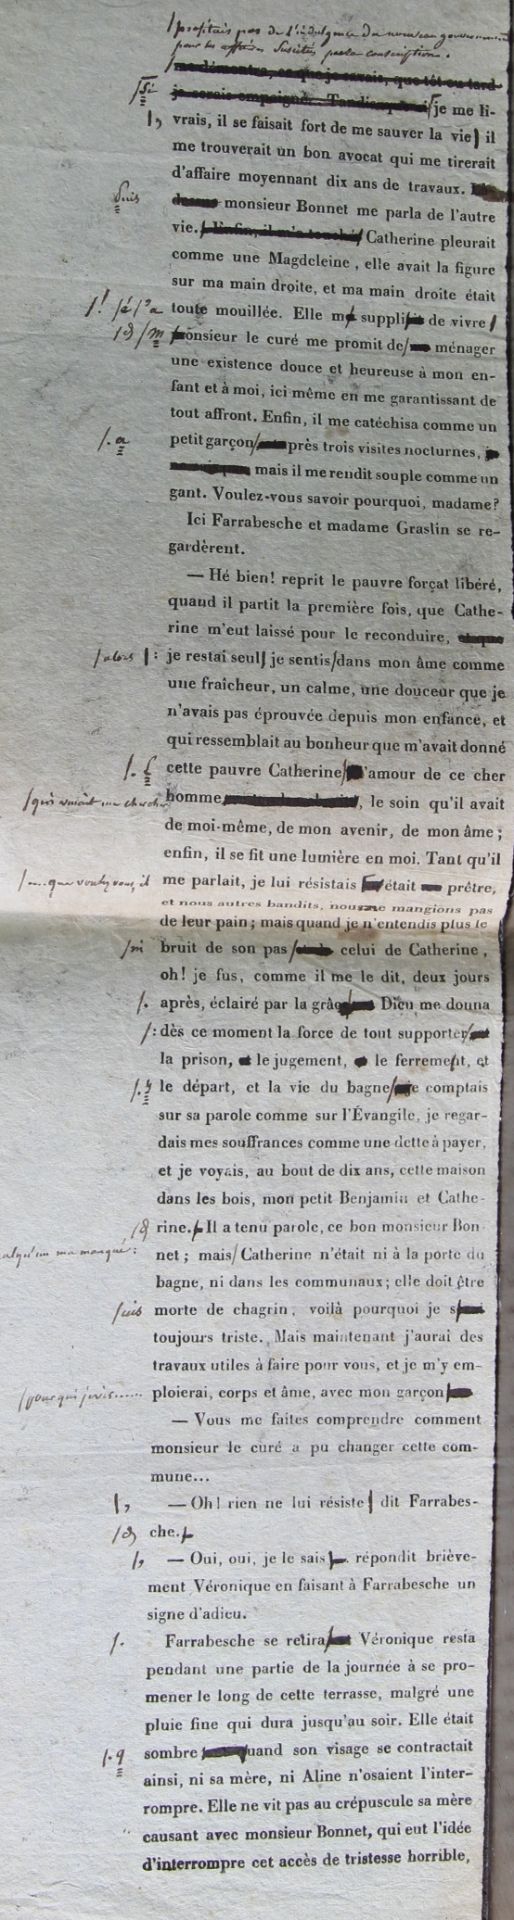 profitais pas de l'indulgence du nouveau gouvernement
pour les affaires suscitées par la conscription.
me démontra, ce que je savais, que tôt ou tard
je serais empoigné.
Si je me li-
vrais, il se faisait fort de me sauver la vie, il
me trouverait un bon avocat qui me tirerait
d'affaire moyennant dix ans de travaux.
Puis monsieur Bonnet me parla de l'autre
vie. Enfin, il m'a touché! Catherine pleurait
comme une Magdeleine, elle avait la figure
sur ma main droite, et ma main droite était
toute mouillée. Elle m'a supplié de vivre!
Monsieur le curé me promit de ménager
une existence douce et heureuse à mon en-
fant et à moi, ici même en me garantissant de
tout affront. Enfin, il me catéchisa comme un
petit garçon. après trois visites nocturnes,
mais il me rendit souple comme un
gant. Voulez-vous savoir pourquoi, madame?
Ici Farrabesche et madame Graslin se re-
gardèrent.
— Hé bien! reprit le pauvre forçat libéré,
quand il partit la première fois, que Cathe-
rine m'eut laissé pour le reconduire,
je restai seul: je sentis alors dans mon âme comme
une fraîcheur, un calme, une douceur que je
n'avais pas éprouvée depuis mon enfance, et
qui ressemblait au bonheur que m'avait donné
cette pauvre Catherine. L'amour de ce cher
homme qui venait me chercher, le soin qu'il avait
de moi-même, de mon avenir, de mon âme;
enfin, il se fit une lumière en moi. Tant qu'il
me parlait, je lui résistais... que voulez-vous, il était prêtre,
et nous autres bandits, nous ne mangions pas
de leur pain; mais quand je n'entendis plus le
bruit de son pas ni celui de Catherine,
oh! je fus, comme il me le dit, deux jours
après, éclairé par la grâce. Dieu me donna
dès ce moment la force de tout supporter:
la prison, le jugement, le ferrement, et
le départ, et la vie du bagne. je comptais
sur sa parole comme sur l'Évangile, je regar-
dais mes souffrances comme une dette à payer,
et je voyais, au bout de dix ans, cette maison
dans les bois, mon petit Benjamin et Cathe-
rine. Il a tenu parole, ce bon monsieur Bon-
net; mais quelqu'un m'a manqué: Catherine n'était ni à la porte du
bagne, ni dans les communaux; elle doit être
morte de chagrin, voilà pourquoi je suis
toujours triste. Mais maintenant j'aurai des
travaux utiles à faire pour vous, et je m'y em-
ploierai, corps et âme, avec mon garçon pour qui je vis......
— Vous me faites comprendre comment
monsieur le curé a pu changer cette com-
mune...
— Oh! rien ne lui résiste, dit Farrabes-
che.
— Oui, oui, je le sais, répondit briève-
ment Véronique en faisant à Farrabesche un
signe d'adieu.
Farrabesche se retira. Véronique resta
pendant une partie de la journée à se pro-
mener le long de cette terrasse, malgré une
pluie fine qui dura jusqu'au soir. Elle était
sombre. quand son visage se contractait
ainsi, ni sa mère, ni Aline n'osaient l'inter-
rompre. Elle ne vit pas au crépuscule sa mère
causant avec monsieur Bonnet, qui eut l'idée
d'interrompre cet accès de tristesse horrible,